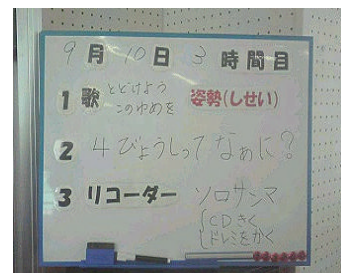 9月10日 3時間目
1 歌 とどけよう 姿勢(しせい)
このゆめを
2 4びょうしってなぁに?
3 リコーダー ソロサンマ
CDきく
ドレミをかく